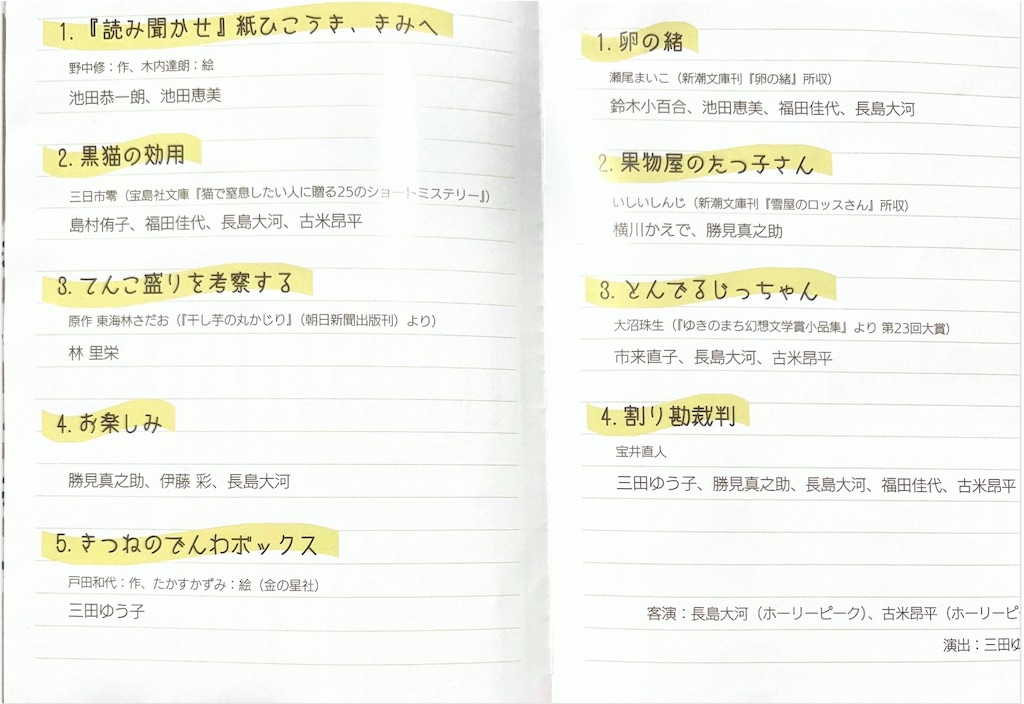 1. 『読み聞かせ』紙ひこうき、きみへ
野中修：作、木内達朗：絵
池田恭一朗、池田恵美
2. 黒猫の効用
三日市零（宝島社文庫『猫で窒息したい人に贈る25のショートミステリー』）
島村侑子、福田佳代、長島大河、古米昂平
3. てんこ盛りを考察する
原作 東海林さだお（『干し芋の丸かじり』（朝日新聞出版刊）より）
林 里栄
4. お楽しみ
勝見真之助、伊藤 彩、長島大河
5. きつねのでんわボックス
戸田和代：作、たかすかずみ：絵（金の星社）
三田ゆう子
1. 卵の緒
瀬尾まいこ（新潮文庫刊『卵の緒』所収）
鈴木小百合、池田恵美、福田佳代、長島大河
2. 果物屋のたつ子さん
いしいしんじ（新潮文庫刊『雪屋のロッスさん』所収）
横川かえで、勝見真之助
3. とんでるじっちゃん
大沼珠生（『ゆきのまち幻想文学賞小品集』より 第23回大賞）
市来直子、長島大河、古米昂平
4. 割り勘裁判
宝井直人
三田ゆう子、勝見真之助、長島大河、福田佳代、古米昂平
客演：長島大河（ホーリーピーク）、古米昂平（ホーリーピ
演出：三田ゆ